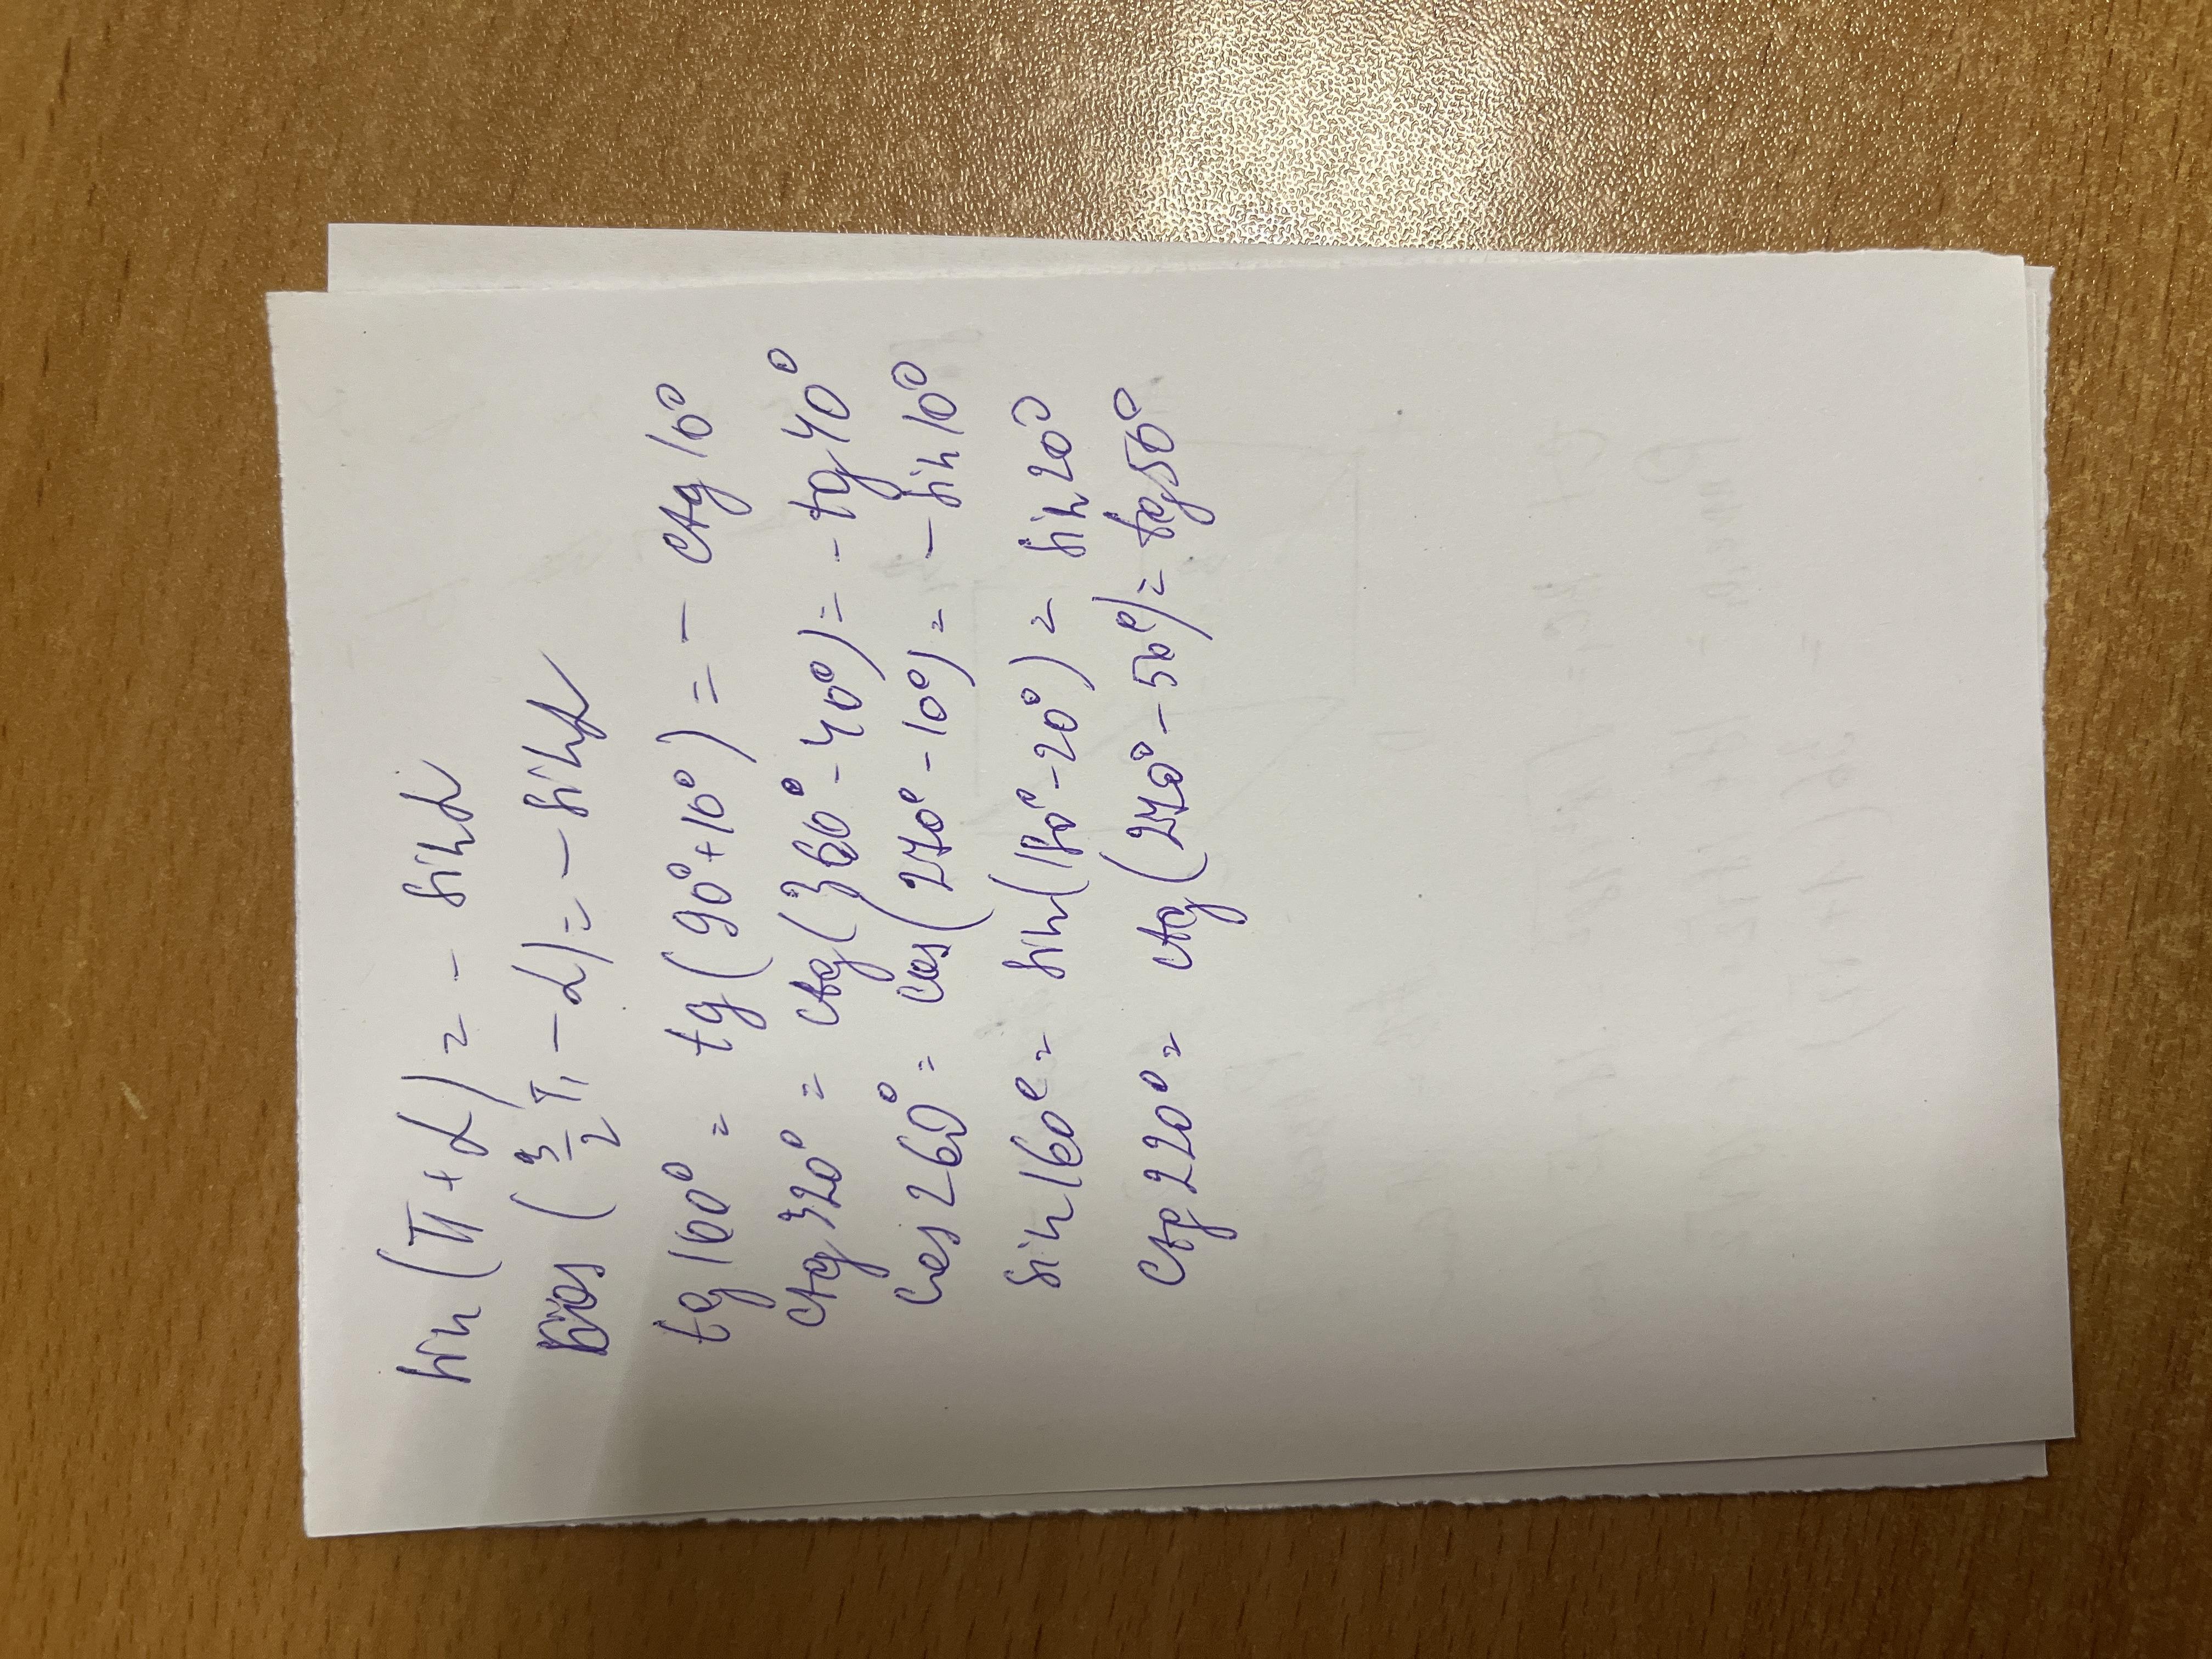 sin(π+α)= - sinα
cos(3/2 π - α)= - sinα
tg 100° = tg(90°+10°) = - ctg 10°
ctg 320° = ctg(360°-40°)= - tg 40°
cos 260° = cos(270°-10°) = - sin 10°
sin 160° = sin(180°-20°) = sin 20°
ctg 220° = ctg(270°-50°)= tg 50°